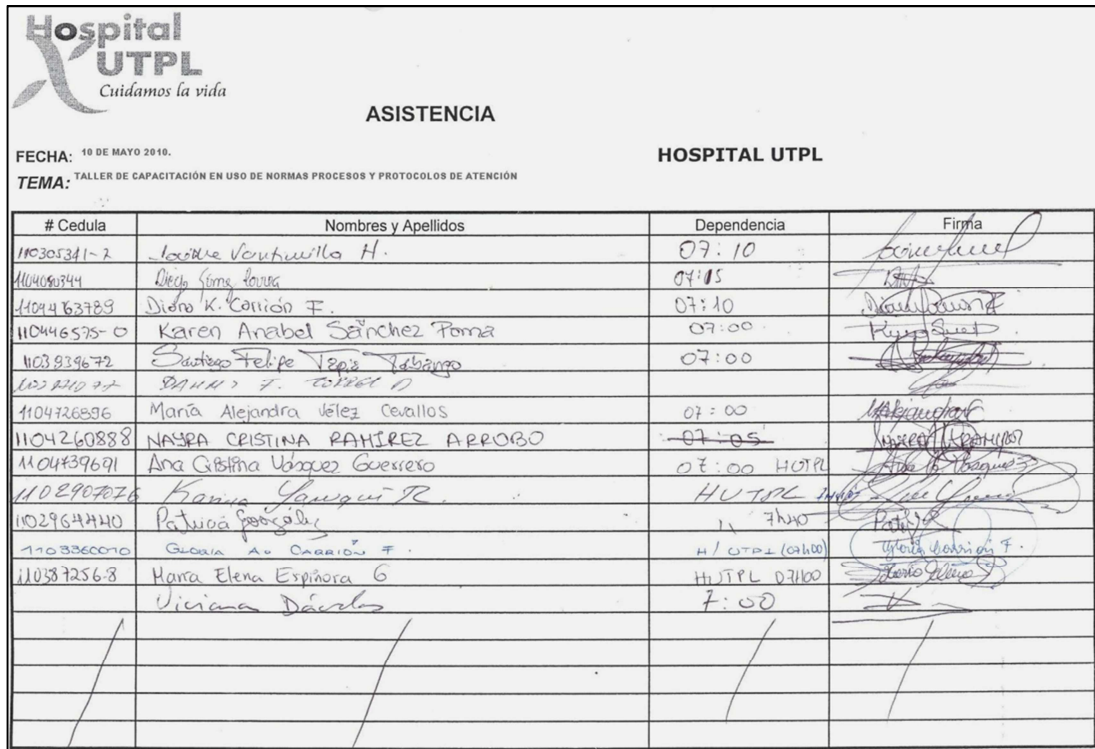 Hospital
UTPL
Cuidamos la vida
ASISTENCIA
FECHA: 10 DE MAYO 2010.
HOSPITAL UTPL
TEMA: TALLER DE CAPACITACIÓN EN USO DE NORMAS PROCESOS Y PROTOCOLOS DE ATENCIÓN
# Cedula Nombres y Apellidos Dependencia Firma
110305341-2 H. 07:10
1104080344 Diego 07:15
1104463789 Diana K. Carrión F. 07:10
110446575-0 Karen Anabel Sánchez Poma 07:00
1103939672 Santiago Felipe Tapia 07:00
1104726896 María Alejandra Vélez Cevallos 07:00
1104260888 NAYRA CRISTINA RAMIREZ ARROBO 07:05
1104739691 Ana Cristina Vásquez Guerrero 07:00 HUTPL
1102907076 Karina R. HUTPL
1102964440 Patricia González 7h40
1103360010 GLORIA AU CARRIÓN F. H/ UTPL (07h00) Gloria Carrión F.
110387256-8 María Elena Espinosa G HUTPL 07H00
Viviana Dávalos 7:00